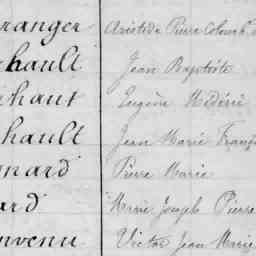 ranger Aristide Pierre Colomb
hault Jean Baptiste
chaut Eugène Médéric
hault Jean Marie Franç
nard Pierre Marie
ard Marie Joseph Pierre
nvenu Victor Jean Marie